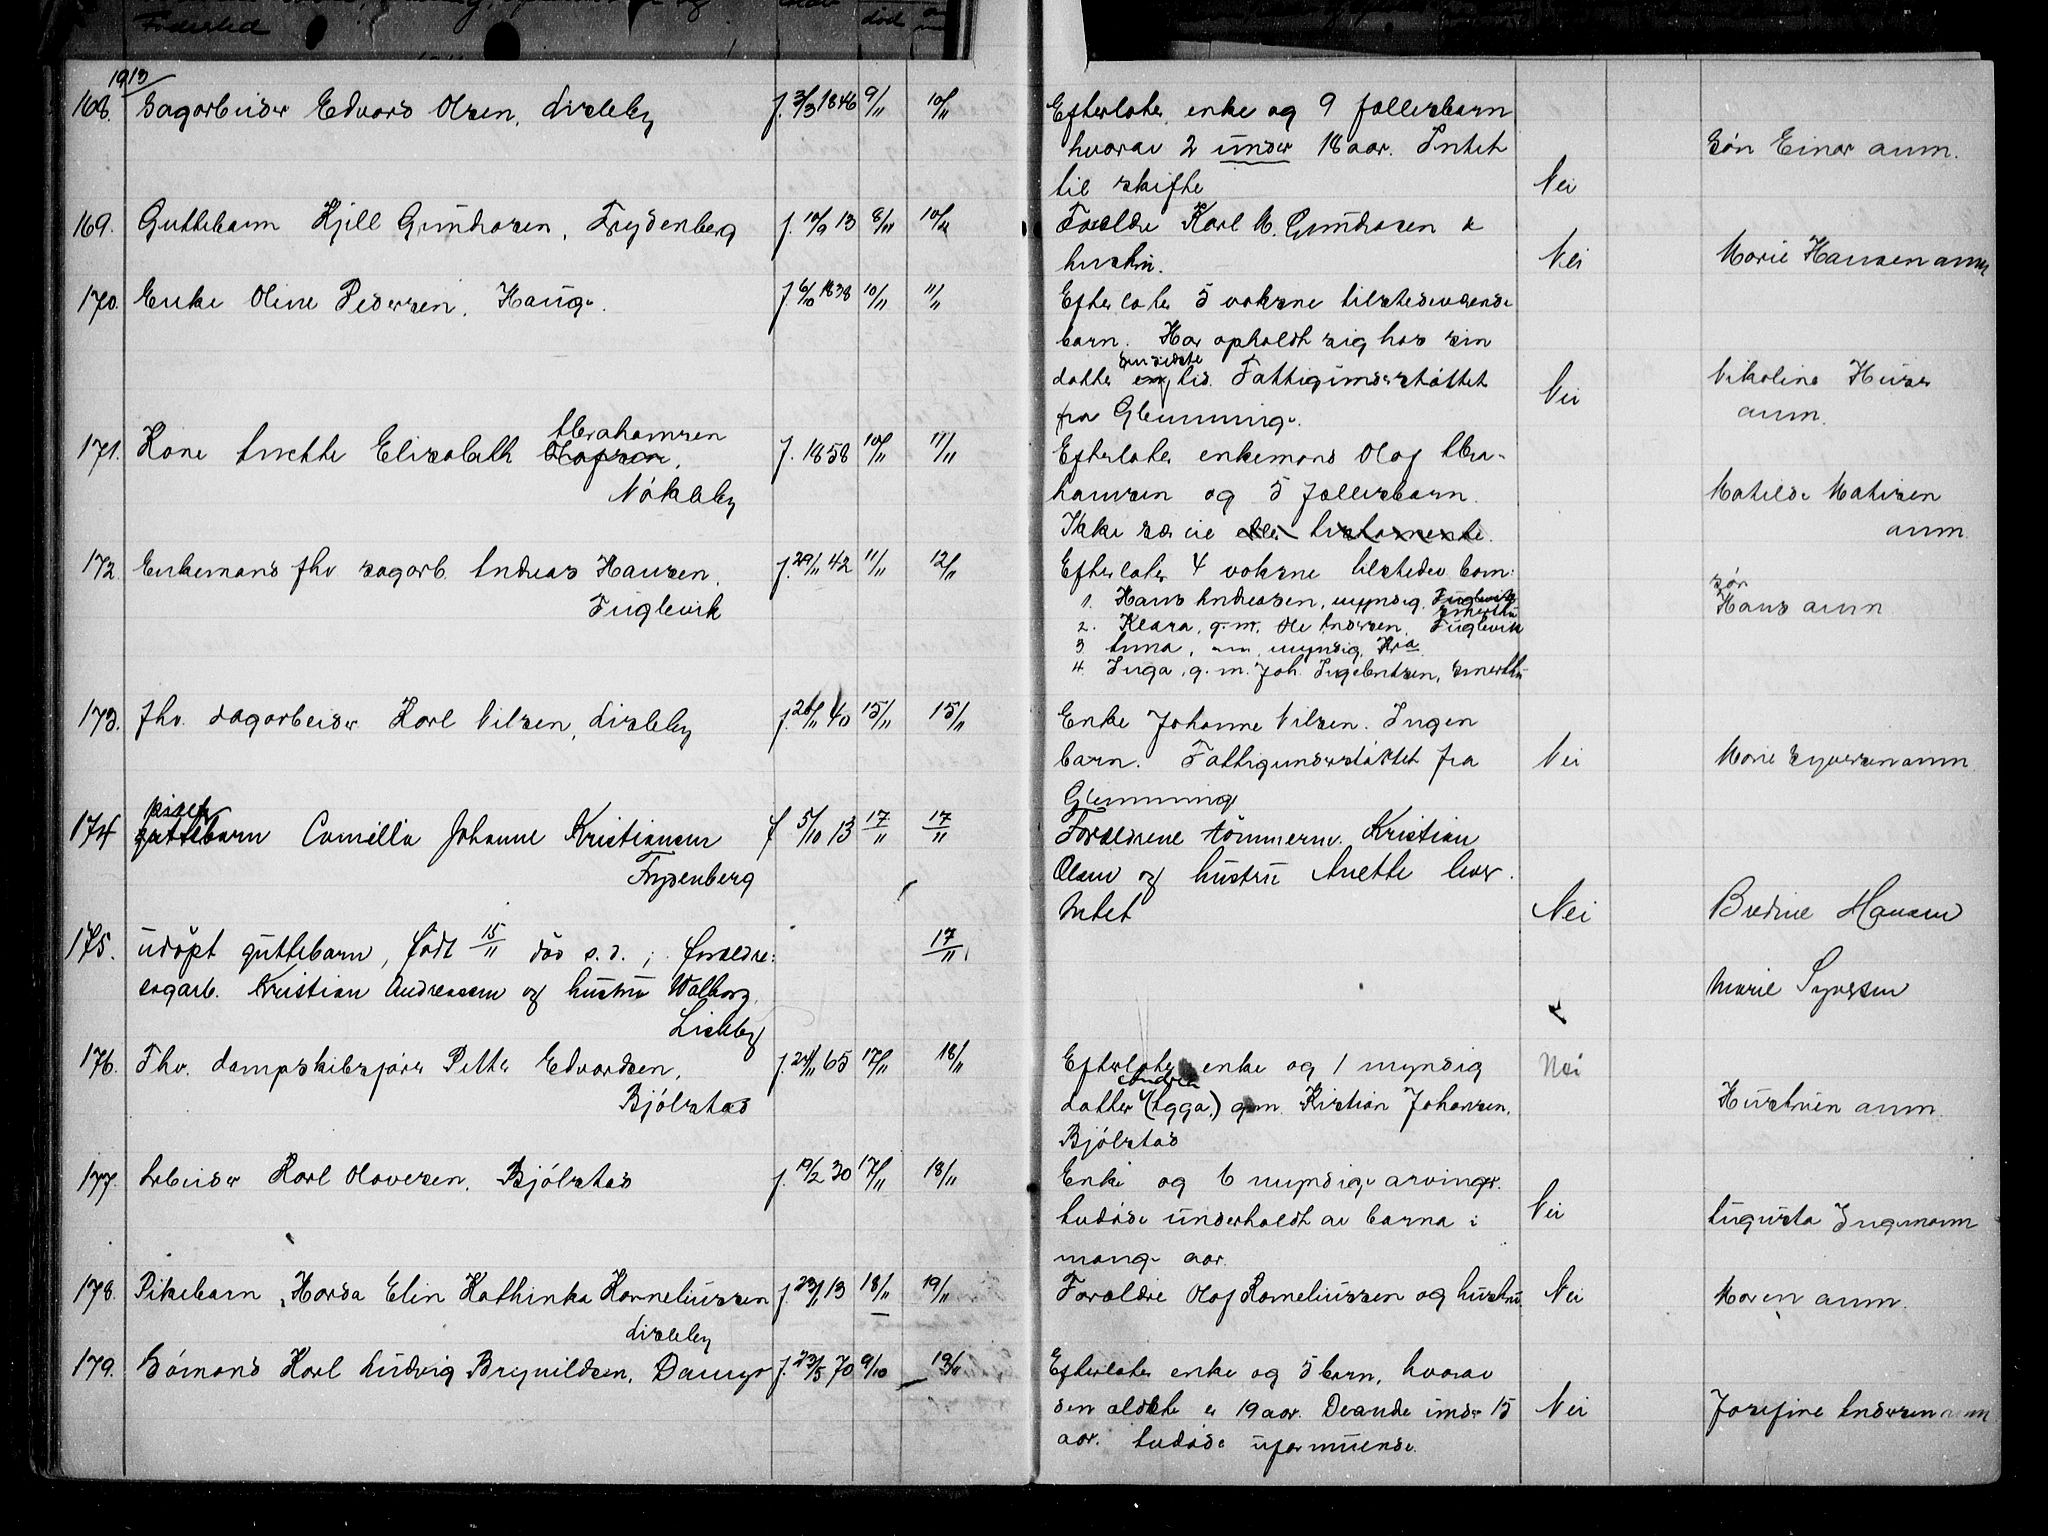 Fødested
død
1913
168. Dagarbeider Edvard Olsen, Lisleby f. 3/3 1846 9/11 10/11 Efterlater enke og 9 fællesbarn
hvorav 2 under 18 aar. Intet Søn Einar anm.
til skifte Nei
169. Guttebarn Kjell Gundersen, Frydenberg f. 10/9 13 8/11 10/11 Forældre Karl M. Gundersen &
hustru. Nei Marie Hansen anm
170. Enke Oline Pedersen, Hauge. f. 6/10 1838 10/11 11/11 Efterlater 5 voksne tilstedeværende
barn. Har opholdt sig hos sin
den sidste
datter tid. Fattigunderstøttet Nei Nikoline Huser
fra Glemminge. anm.
Abrahamsen
171. Kone Anette Elisabeth Olafsen, f. 1858 10/11 11/11 Efterlater enkemand Olaf Abra-
Nøkleby hamsen og 5 fællesbarn. Matilde Matisen
Ikke særeie eller testamente. anm.
172. Enkemand fhv sagarb. Andreas Hansen, f. 29/11 42 11/11 12/11 Efterlater 4 voksne tilstedev. barn:
Fuglevik
1. Hans Andreasen, myndig, Fuglevik Smertu søn Hans anm
2. Klara, g.m. Ole Andersen, Fuglevik
3 Anna, myndig, Kra
4. Inga, g.m. Joh. Ingebretsen, Smertu
173. fhv. dagarbeider Karl Nilsen, Lisleby f. 26/11 40 15/11 15/11 Enke Johanne Nilsen. Ingen
barn. Fattigunderstøttet fra Nei Marie Syversen anm
Glemminge
pike
174 guttebarn Camilla Johanne Kristiansen f 5/10 13 17/11 17/11 Forældrene tømmerm. Kristian
Frydenberg Olsen og hustru Anette lever.
Intet Nei Bredine Hansen
175. udøpt guttebarn, født 15/11 død s.d.; forældre: 17/11
sagarb. Kristian Andreassen og hustru Walborg, Marie Syversen
Lisleby
176. Fhv. dampskibsfører Petter Edvardsen, f. 24/11 65 17/11 18/11 Efterlater enke og 1 myndig Nei
Andrea
Bjølstad datter (Agga) g.m. Kristian Johansen, Hustruen anm
Bjølstad
177. Arbeider Karl Olavesen, Bjølstad f. 19/2 30 17/11 18/11 Enke og 6 myndige arvinger.
Avdøde underholdt av barna i Nei Augusta Ingmann
mange aar.
178. Pikebarn, Harda Elin Kathinka Korneliussen f. 23/11 13 18/11 19/11 Forældre Olaf Korneliussen og hustru Nei Maren anm.
Lisleby
179. Sømand Karl Ludvig Brynildsen, Damyr f. 23/5 70 9/10 19/11 Efterlater enke og 5 barn, hvorav
den ældste er 19 aar. De andre under 15 Nei Josefine Andersen anm
aar. Avdøde uformuende.